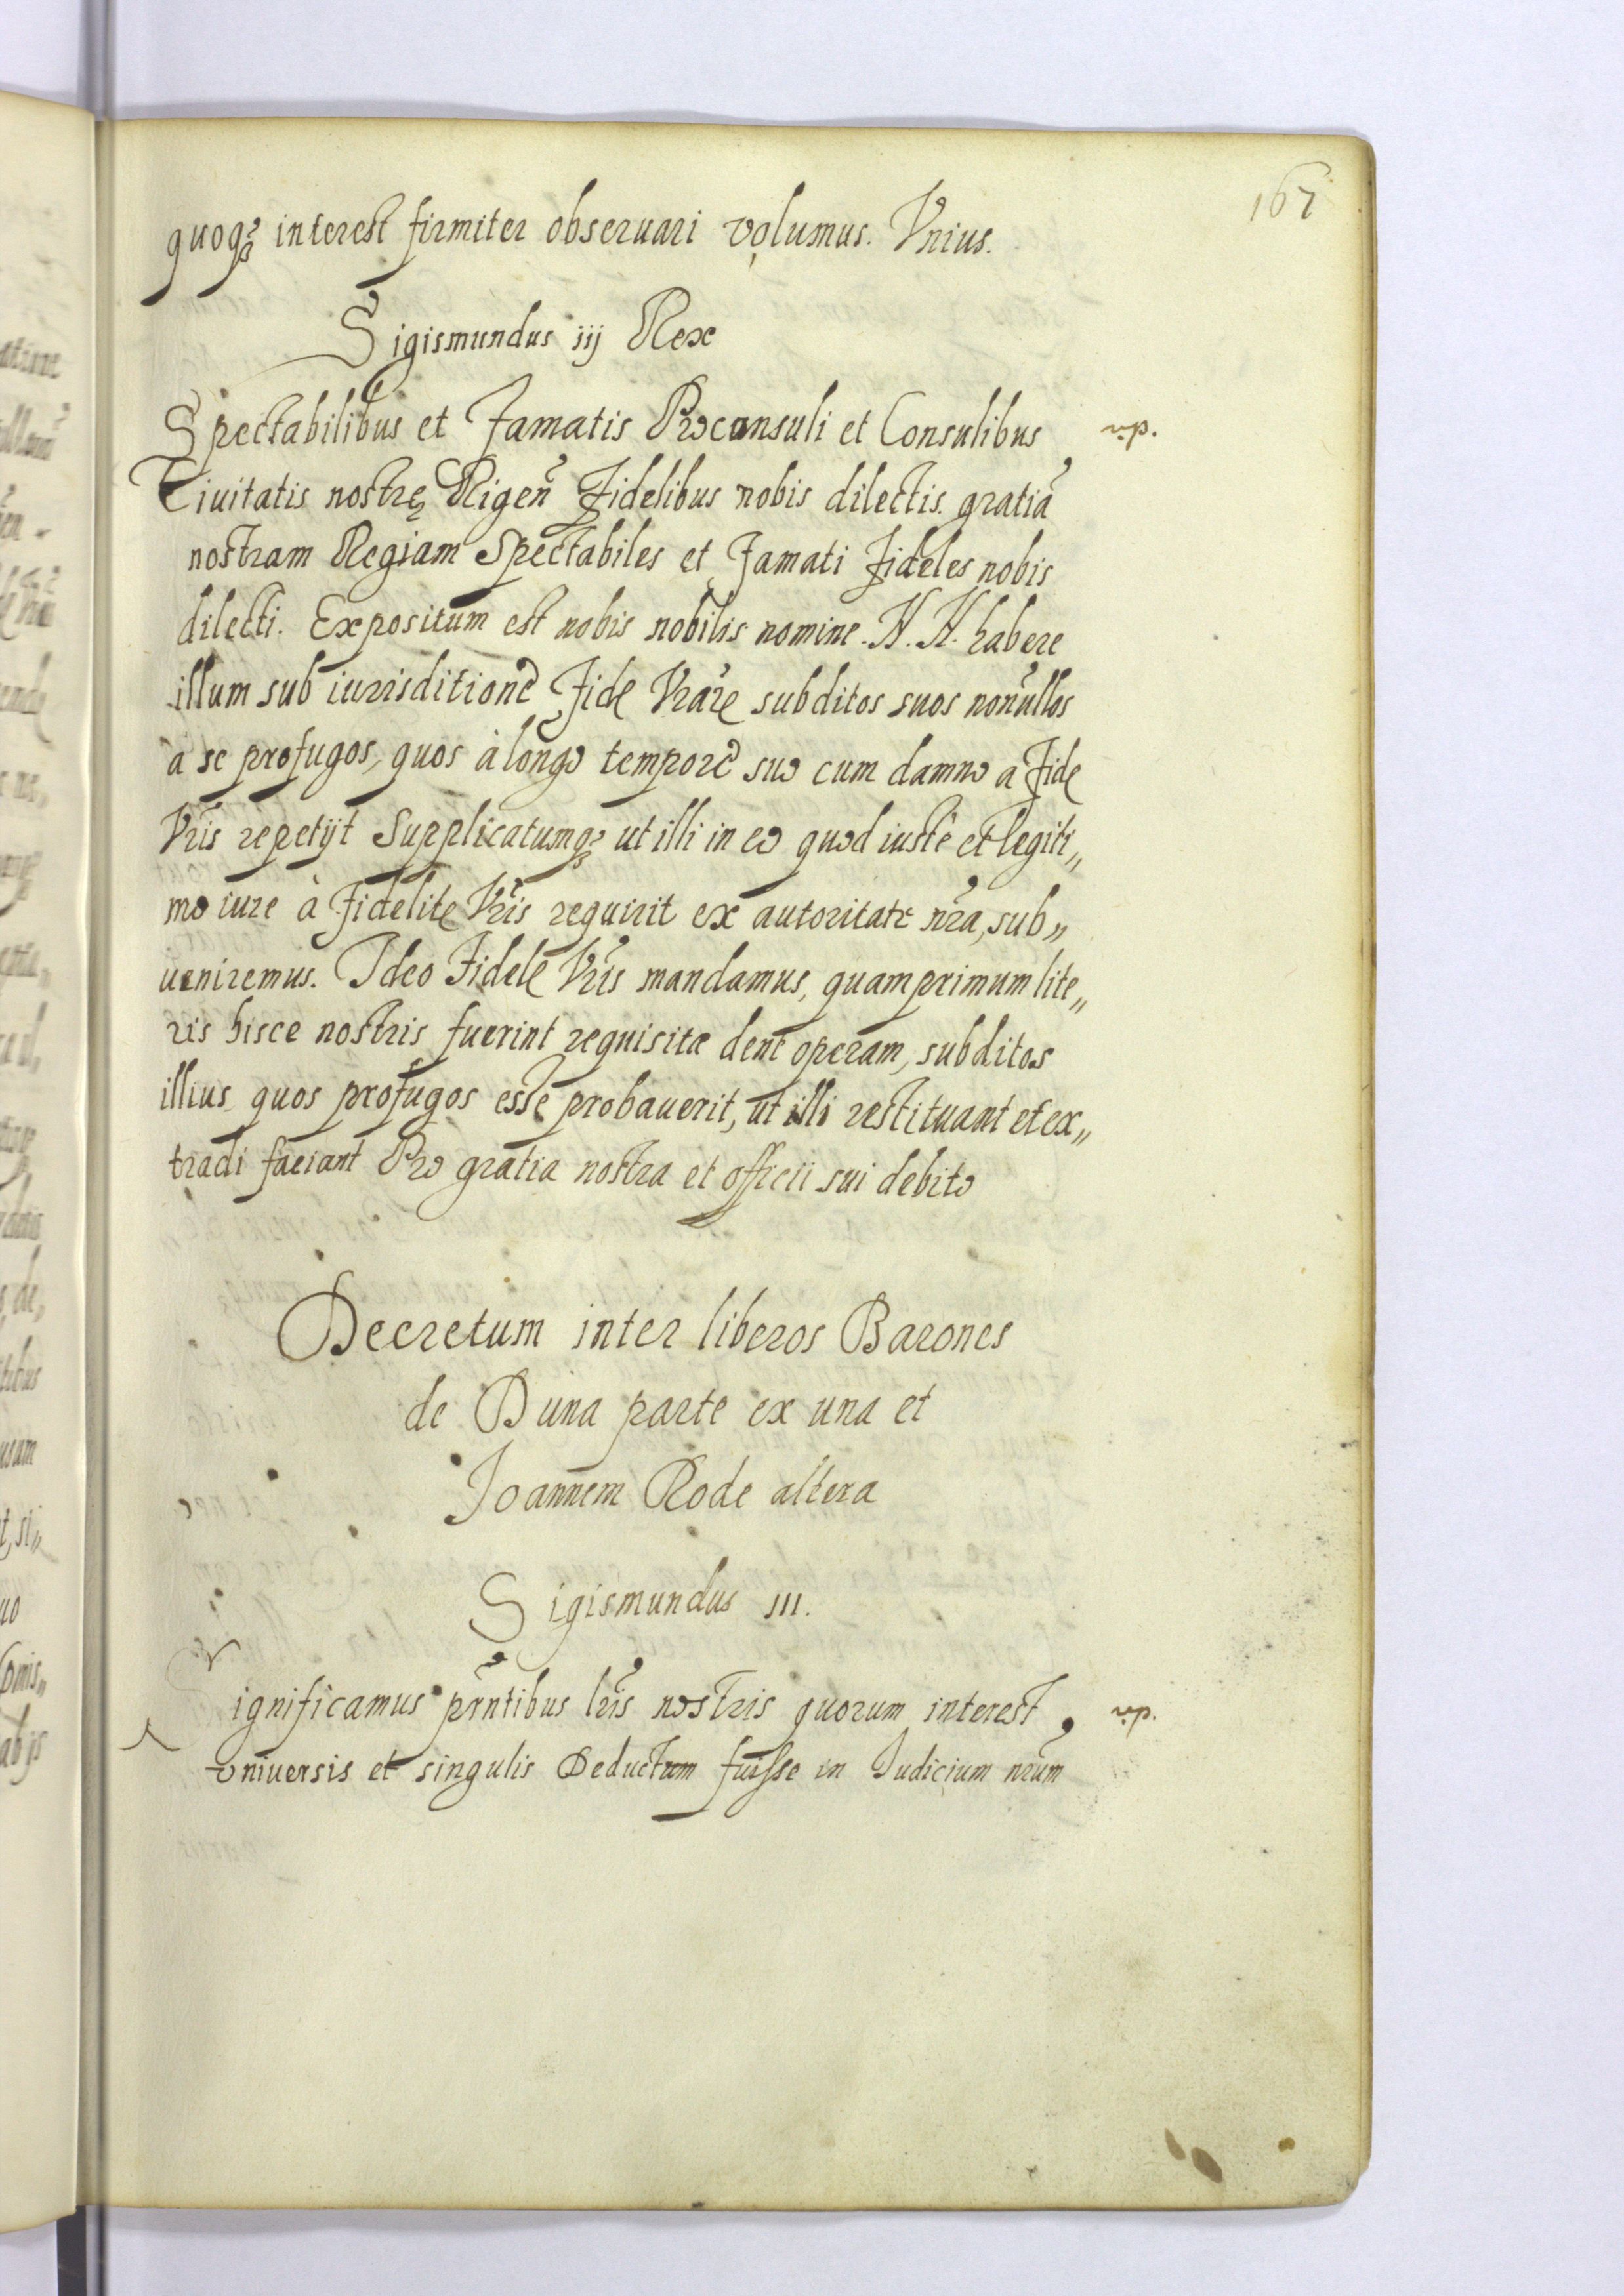 167
quoq₃ interest firmiter obseruari volumus. Vnius.
Sigismundus iij Rex
Spectabilibus et Famatis Proconsuli et Consulibus
Ciuitatis nostrę Rigeñ Fidelibus nobis dilectis. gratiã
nostram Regiam Spectabiles et Famati Fideles nobis
dilecti. Expositum est nobis nobilis nomine. N. N. habere
illum sub iurisditione Fidel Vrãre subditos suos nonñullos
à se profugos, quos à longo tempore suo cum damno a Fidel
Vrĩs repetijt Supplicatumq₃ ut illi in eo quod iustè et legiti„
mo iure à Fidelite Vrĩs requirit ex autoritate nr̃a, sub„
ueniremus. Ideo Fidele Vrĩs mandamus, quamprimum lite„
ris hisce nostris fuerint requisitæ dent operam, subditos
illius quos profugos esse probauerit, ut illi restituant et ex„
tradi faciant Pro gratia nostra et officii sui debito
Decretum inter liberos Barones
de Duna parte ex una et
Joannem Rode altera
Sigismundus III.
Significamus pr̃ntibus lr̃is nostris quorum interest
vniuersis et singulis Deductam fuisse in Iudicium nr̃um